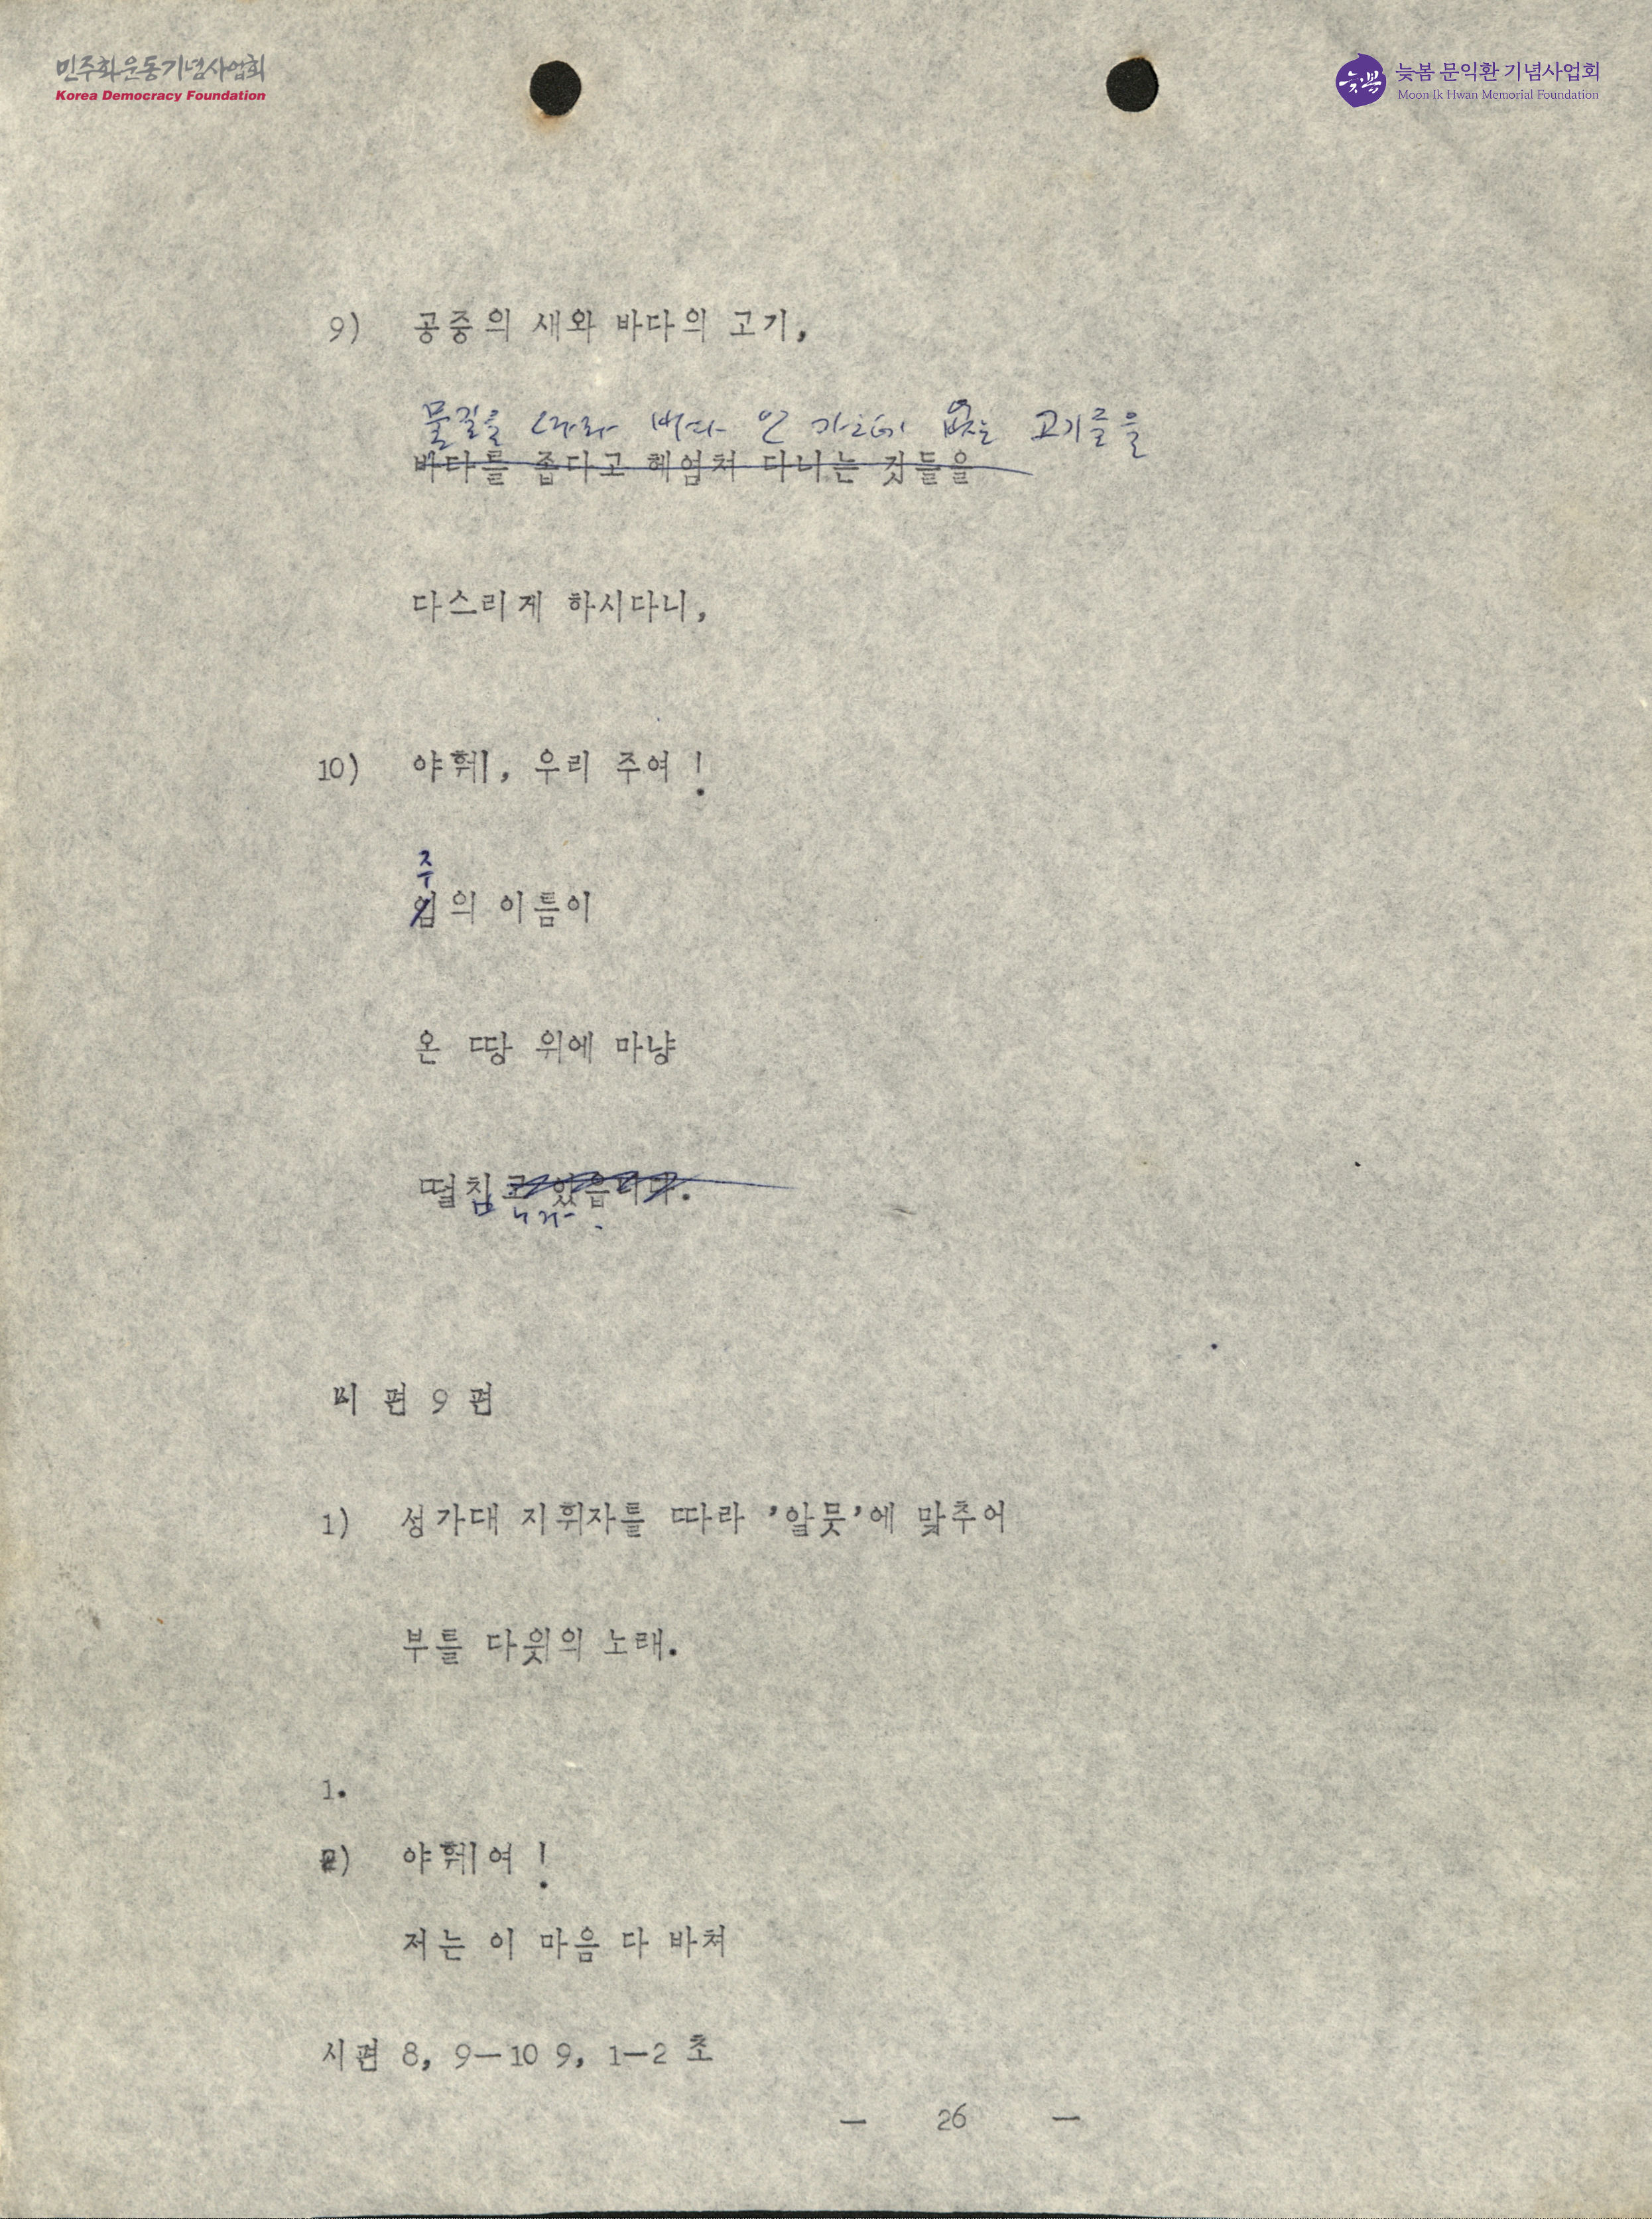 민주화운동기념사업회
Korea Democracy Foundation
늦봄
늦봄 문익환 기념사업회
Moon Ik Hwan Memorial Foundation
9) 공중의 새와 바다의 고기,
물길을 따라 바다 안 가는데 없는 고기들을
바다를 좁다고 헤엄쳐 다니는 것들을
다스리게 하시다니,
10) 야훼, 우리 주여!
주
임의 이름이
온 땅 위에 마냥
떨침고 있읍니다.
1) 성가대 지휘자를 따라 '알뭇'에 맞추어
부를 다윗의 노래.
1.
2) 야훼여!
저는 이 마음 다 바쳐
시편 8, 9—10 9, 1—2 초
— 26 —